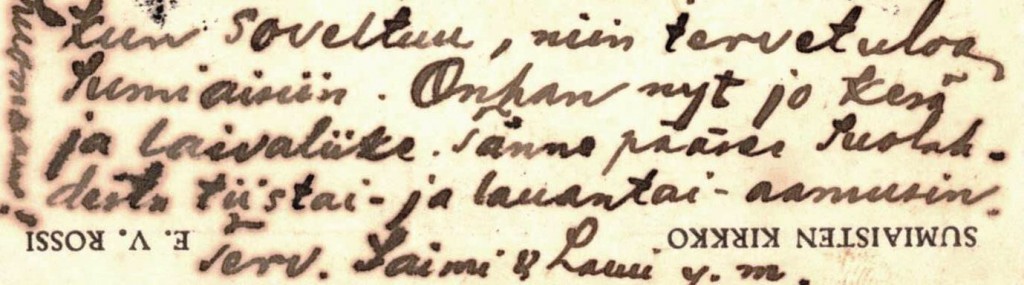 kun soveltuu, niin tervetuloa
Sumiaisiin. Onhan nyt jo kesä
ja laivaliike. Tänne pääsee Suolah-
desta tiistai- ja lauantai-aamusin.
Terv. Saimi & Lauri y.m.
SUMIAISTEN KIRKKO
E. V. ROSSI